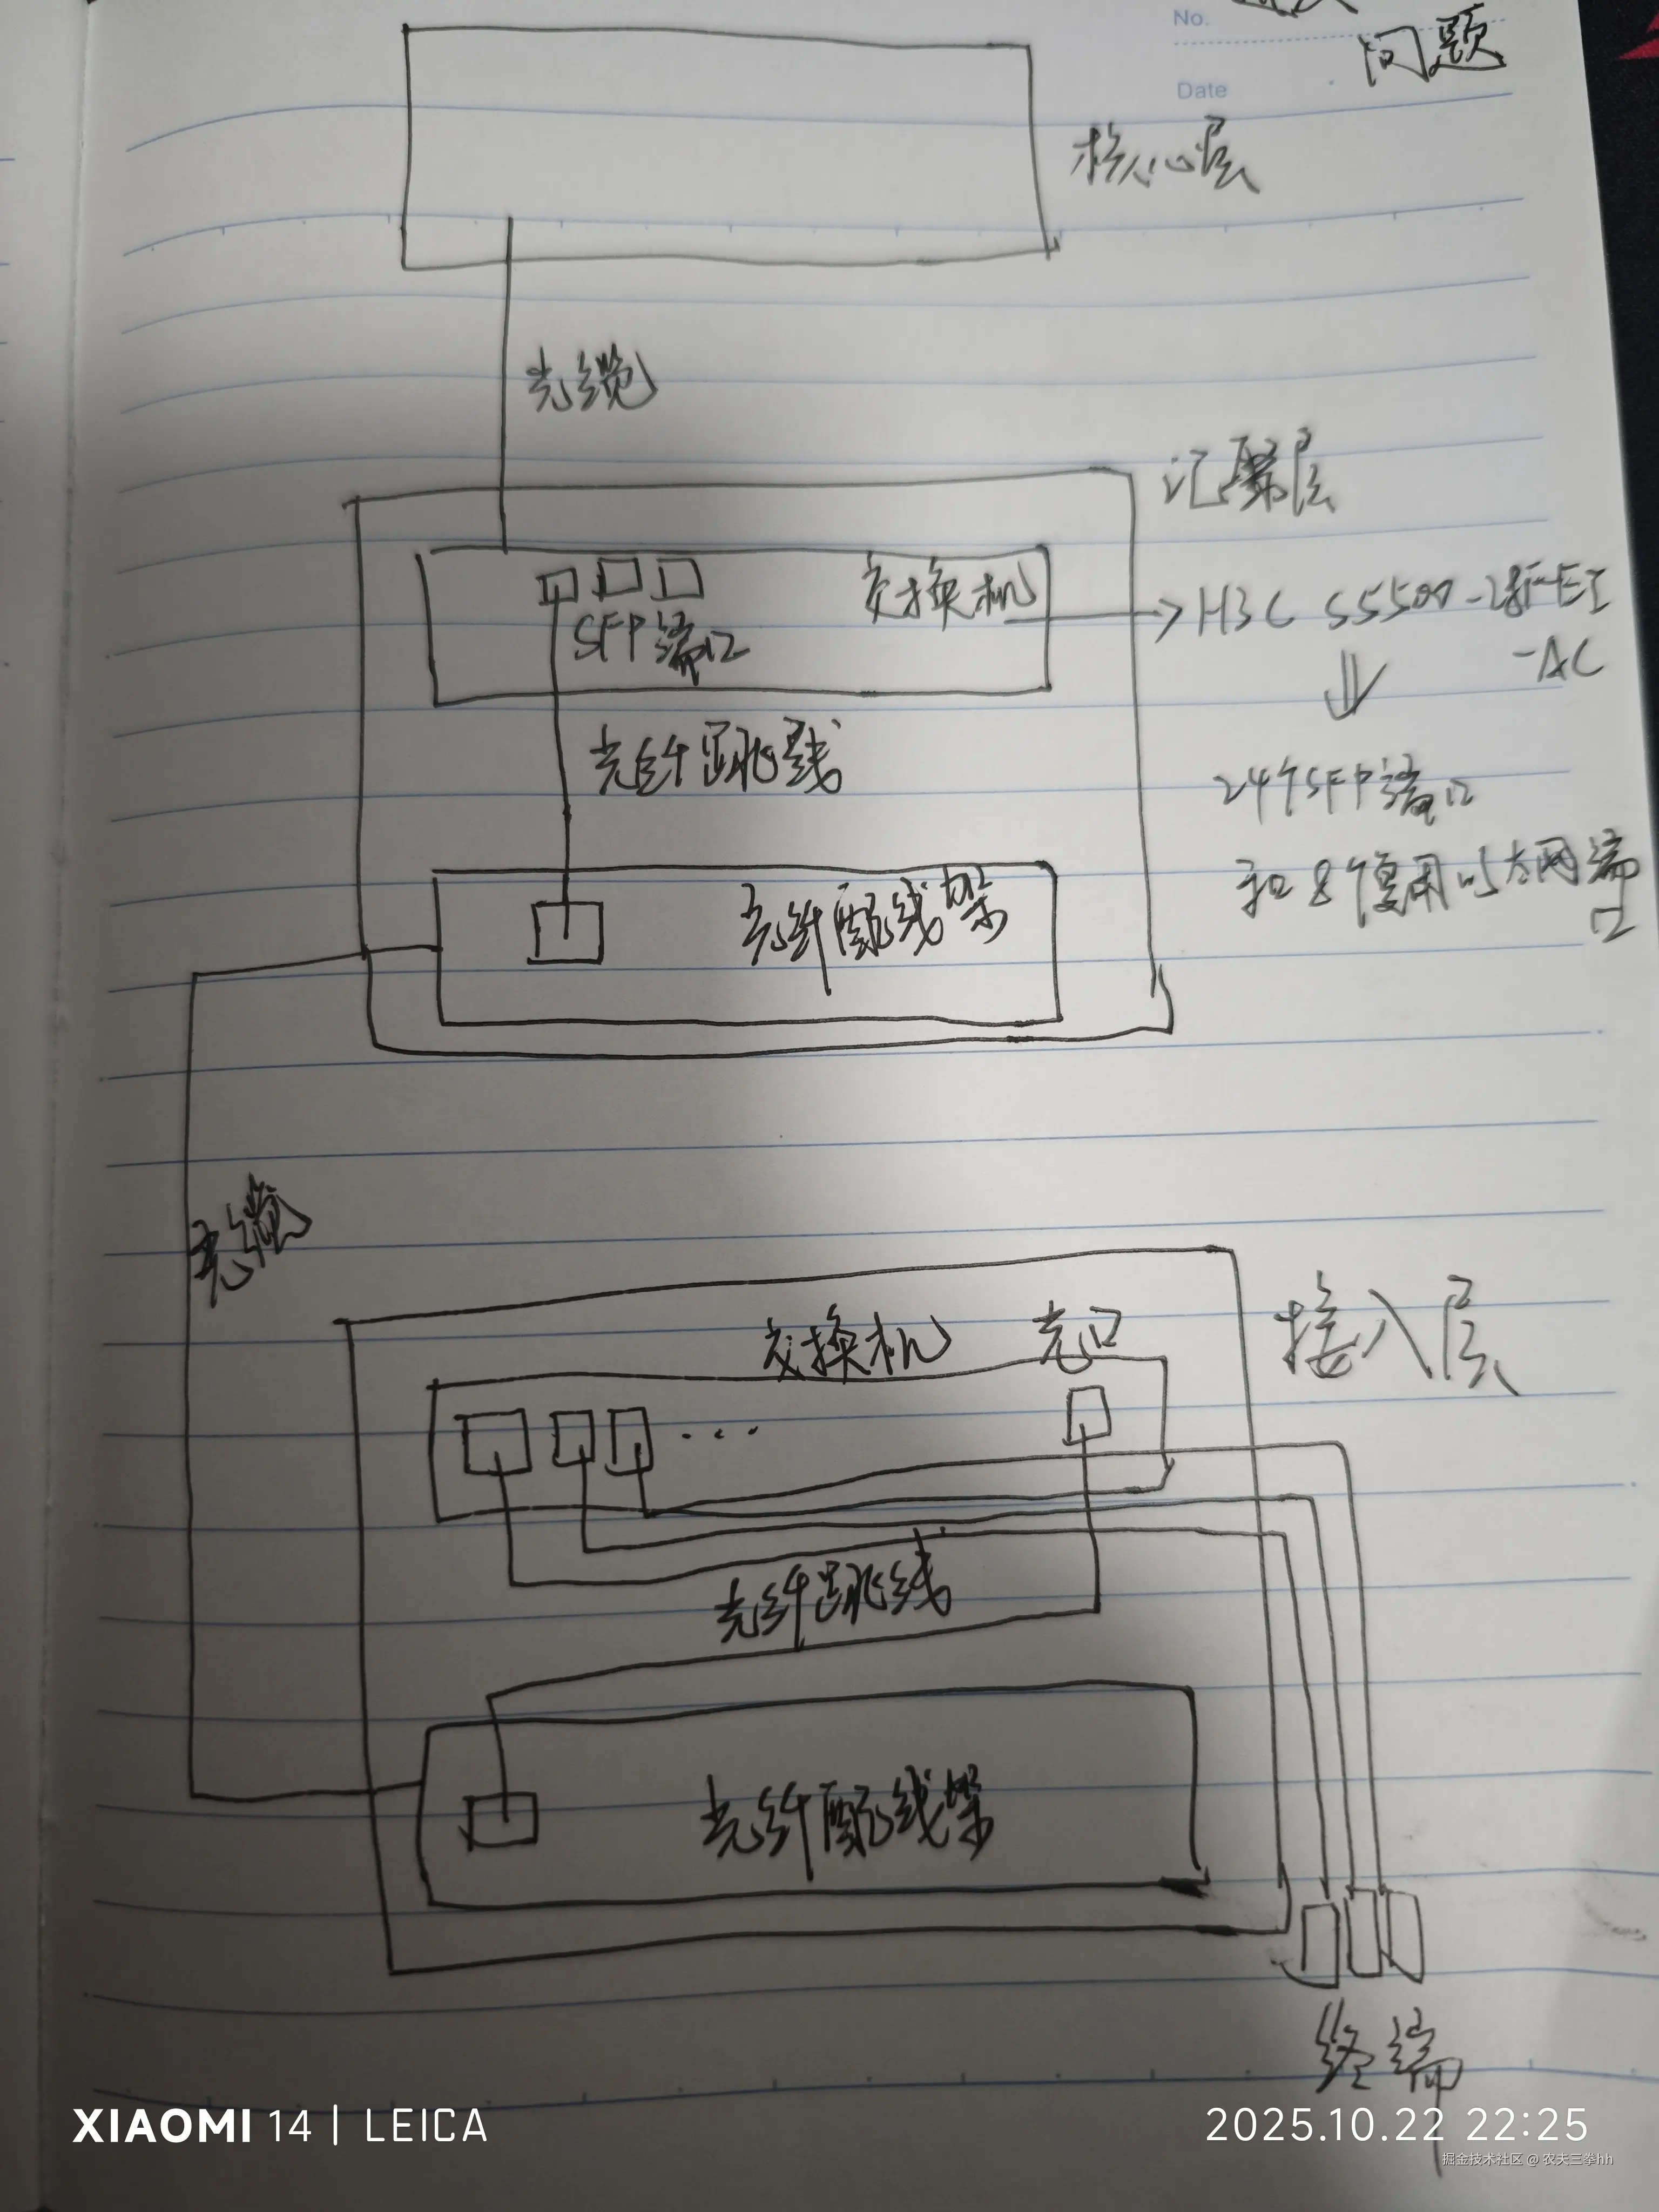 No.
问题
Date
核心层
光缆
汇聚层
交换机
SFP端口
H3C S5500-28F-EI
-AC
光纤跳线
24个SFP端口
和8个复用以太网端
口
光纤配线架
光缆
接入层
交换机 光口
...
光纤跳线
光纤配线架
终端
XIAOMI 14 | LEICA
2025.10.22 22:25
掘金技术社区 @ 农夫三拳hh